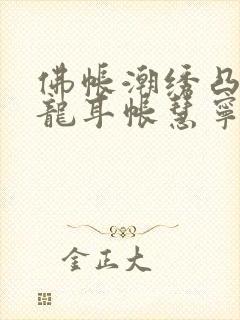 佛帐潮绣凸
龍耳帐慧寧
金正大